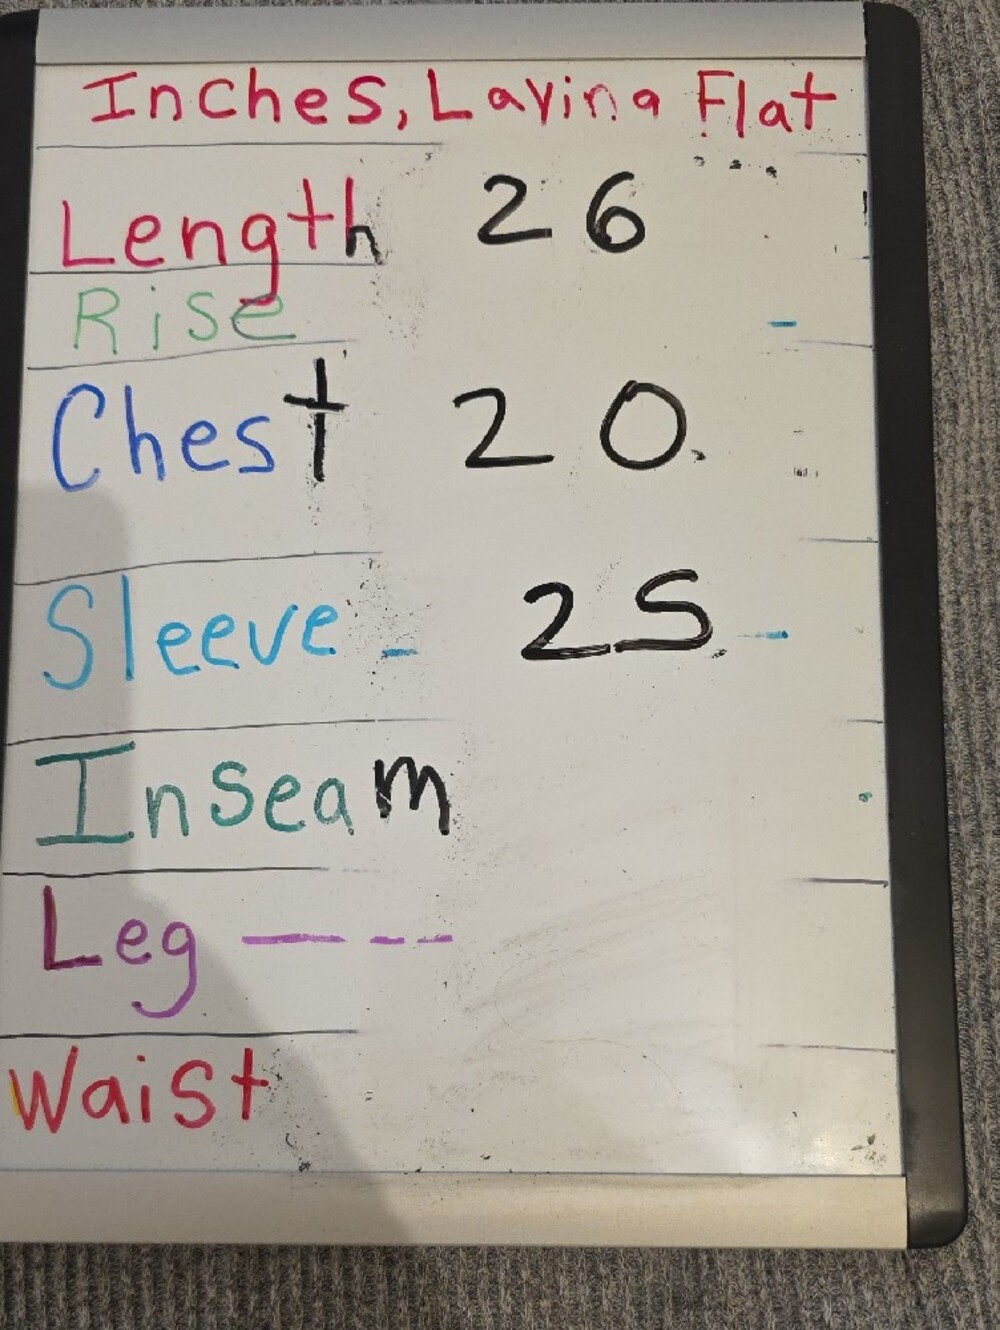 Inches, Laying Flat
Length 26
Rise
Chest 20
Sleeve - 25
Inseam
Leg — - -
Waist